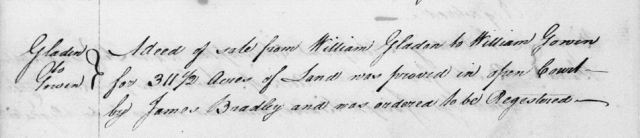 Gladen
to
Gowen
A deed of sale from William Gladen to William Gowen
for 311½ Acres of Land was proved in open Court
by James Bradley and was ordered to be Regestered